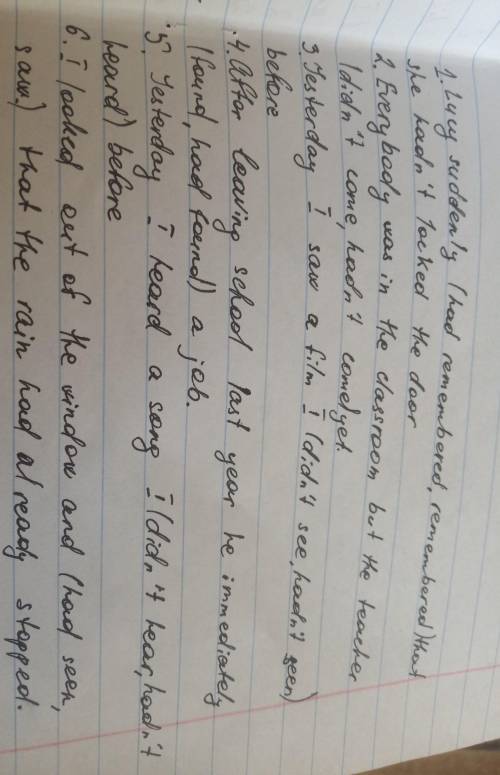 1. Lucy suddenly (had remembered, remembered) that
she hadn't locked the door
2. Everybody was in the classroom but the teacher
(didn't come, hadn't come) yet.
3 Yesterday I saw a film I (didn't see, hadn't seen)
before
4. After leaving school last year he immediately
(found, had found) a job.
5. Yesterday I heard a song I (didn't hear, hadn't
heard) before
6. I looked out of the window and (had seen,
saw.) that the rain had already stopped.